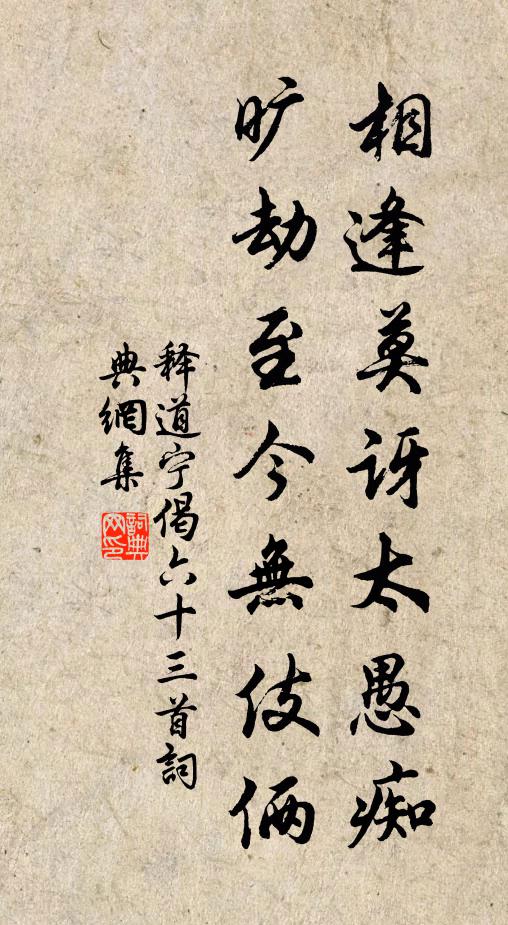 相逢莫讶太愚痴
旷劫至今無伎倆
释道宁偈六十三首詞
典網集
詞典网印